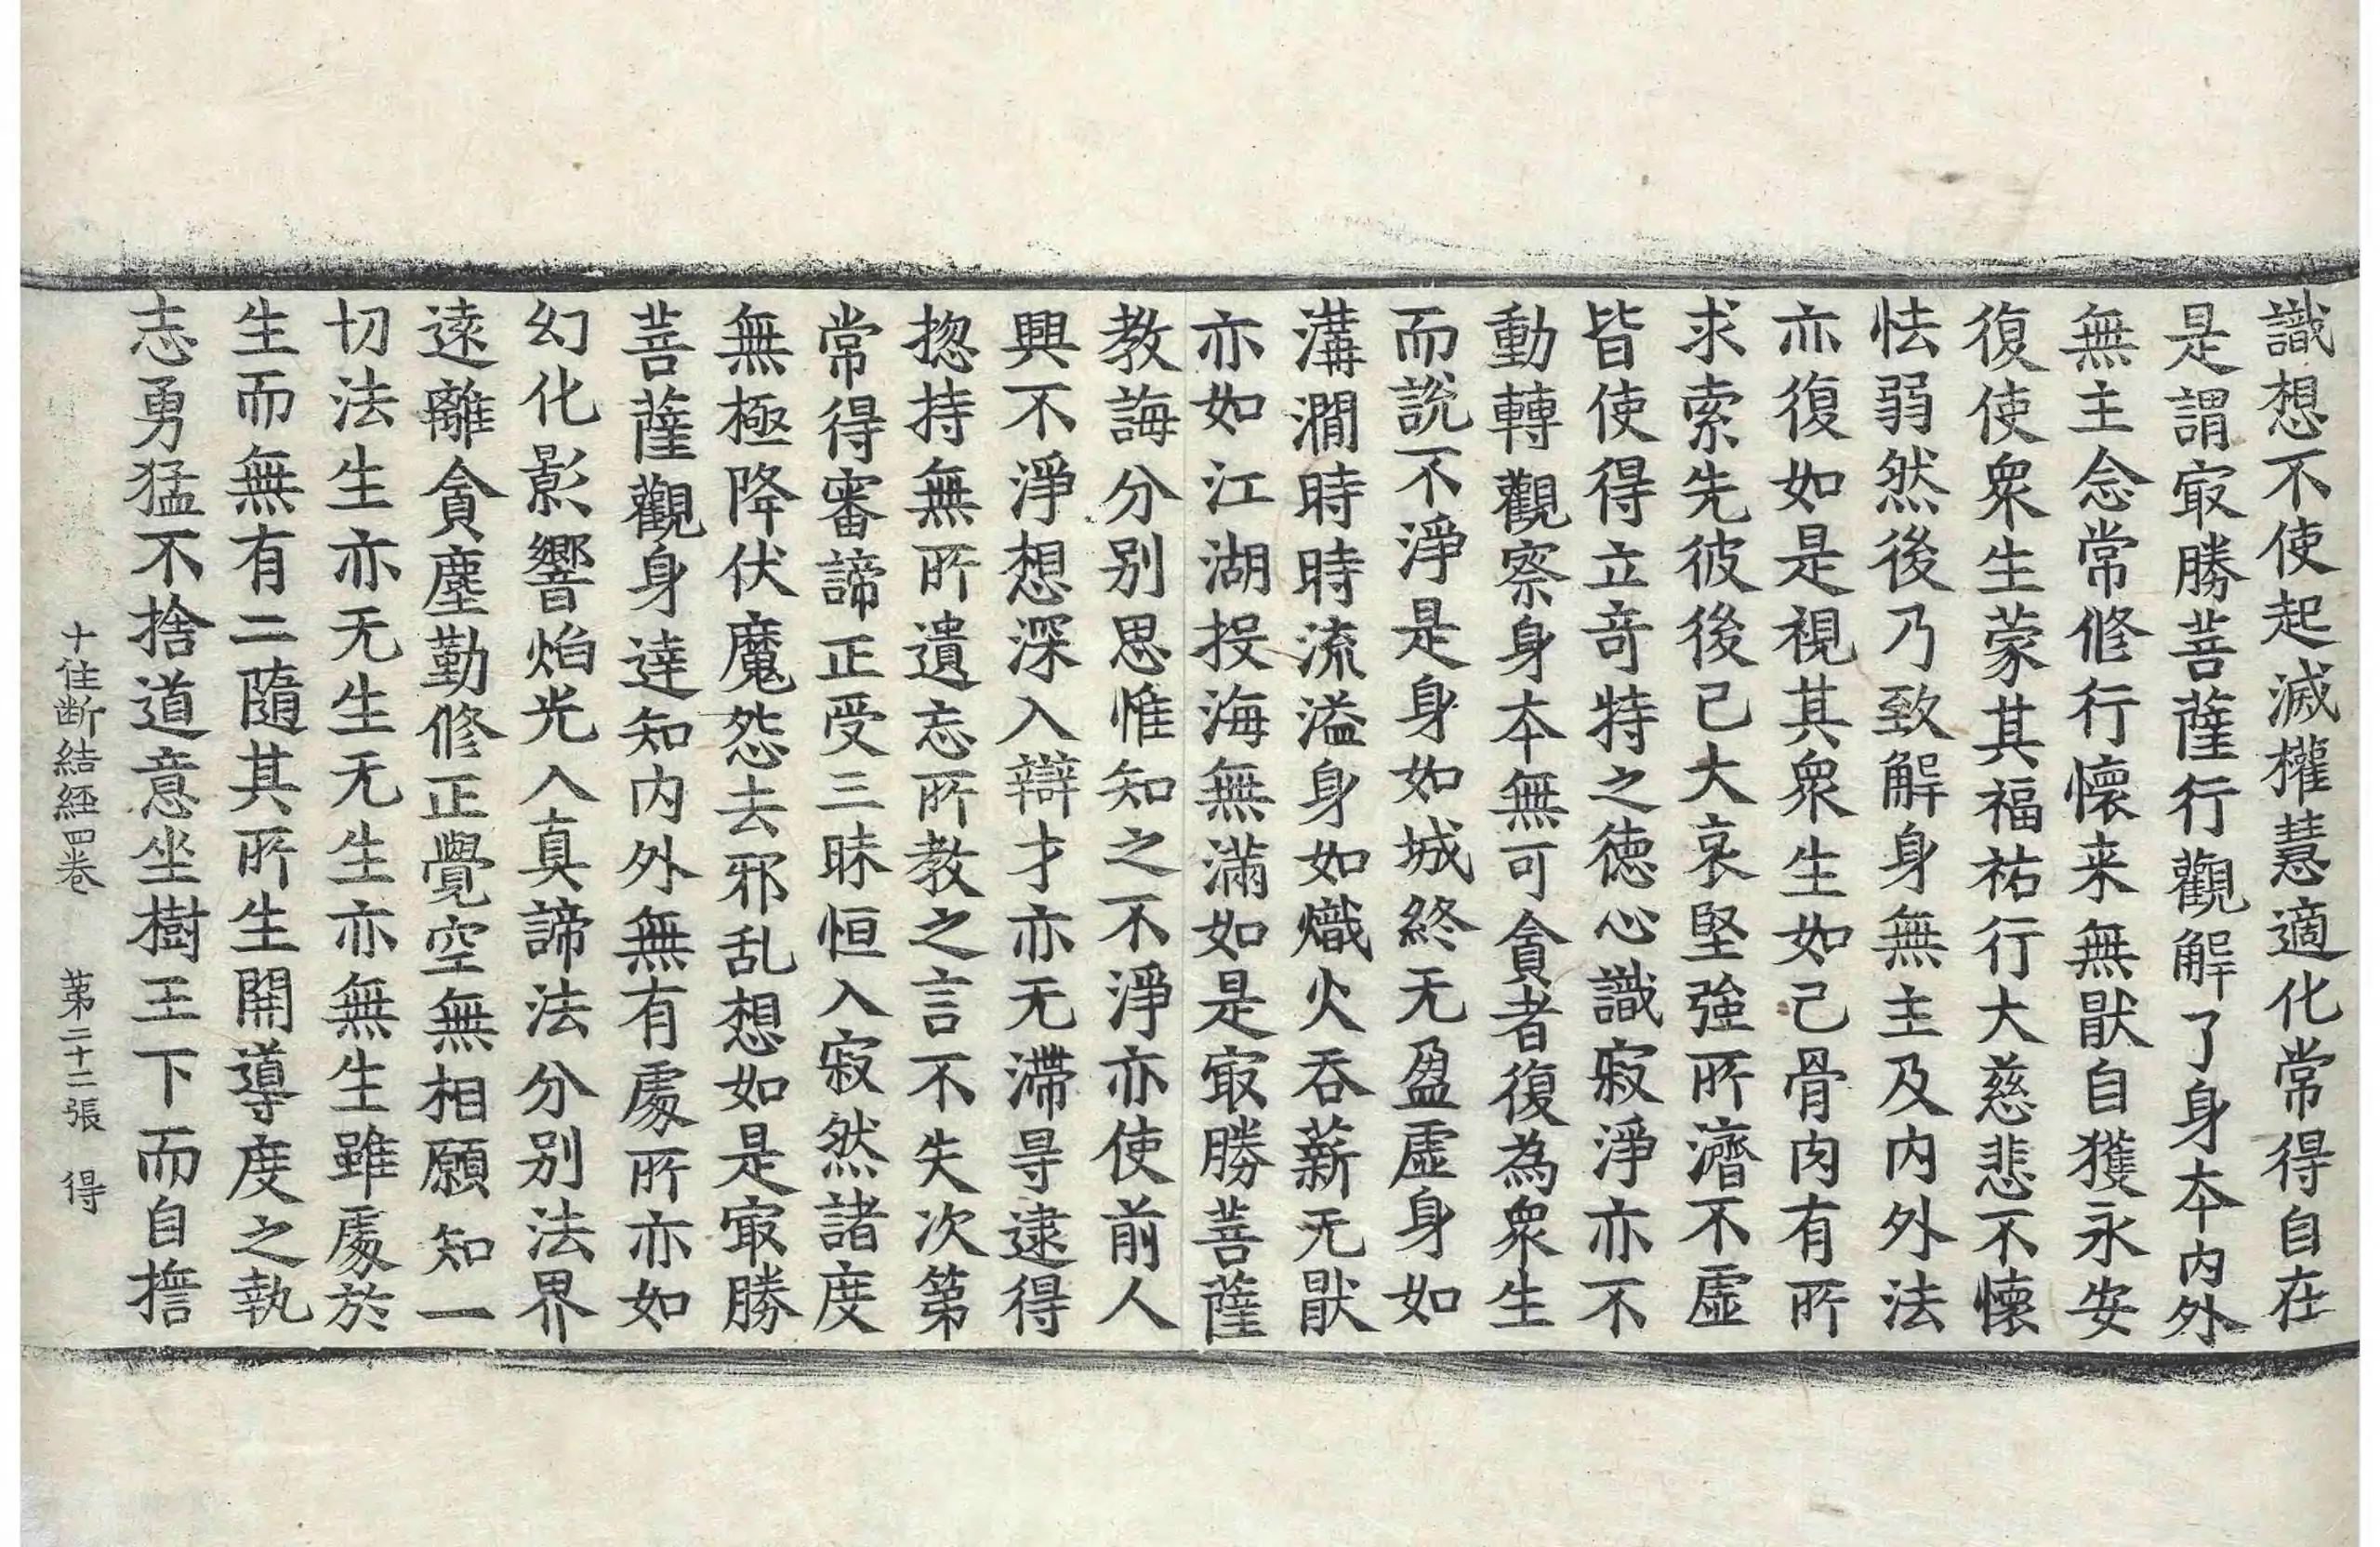 識想不使起滅權慧適化常得自在
是謂㝡勝菩薩行觀解了身本内外
無主念常修行懷来無猒自獲永安
復使衆生蒙其福祐行大慈悲不懷
怯弱然後乃致解身無主及内外法
亦復如是視其衆生如己骨肉有所
求索先彼後已大哀堅強所濟不虛
皆使得立竒特之德心識寂淨亦不
動轉觀察身本無可貪者復為衆生
而說不淨是身如城終无盈虛身如
溝澗時時流溢身如熾火吞薪无猒
亦如江湖投海無滿如是㝡勝菩薩
教誨分別思惟知之不淨亦使前人
興不淨想深入辯才亦无滯㝵逮得
揔持無所遺忘所教之言不失次第
常得審諦正受三昧恒入寂然諸度
無極降伏魔怨去邪乱想如是㝡勝
菩薩觀身達知内外無有處所亦如
幻化影響焰光入真諦法分別法界
遠離貪塵勤修正覺空無相願知一
切法生亦无生无生亦無生雖處於
生而無有二隨其所生開導度之執
志勇猛不捨道意坐樹王下而自擔
十住断結経四卷 苐二十二張 得